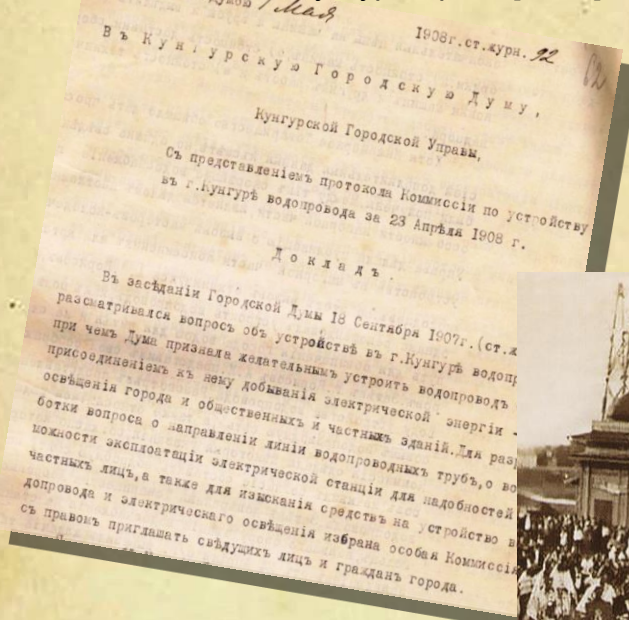 Думою 1 Мая
1908г.ст.журн. 92
62
Въ Кунгурскую Городскую Думу,
Кунгурской Городской Управы,
Съ представленіемъ протокола Коммиссіи по устройству
въ г.Кунгурѣ водопровода за 23 Апрѣля 1908 г.
Докладъ.
Въ засѣданіи Городской Думы 18 Сентября 1907г.(ст.ж
разсматривался вопросъ объ устройствѣ въ г.Кунгурѣ водопр
при чемъ Дума признала желательнымъ устроить водопроводъ
присоединеніемъ къ нему добыванія электрической энергіи
освѣщенія города и общественныхъ и частныхъ зданій.Для раз
ботки вопроса о направленіи линіи водопроводныхъ трубъ,о во
можности эксплоатаціи электрической станціи для надобностей
частныхъ лицъ,а также для изысканія средствъ на устройство в
допровода и электрическаго освѣщенія избрана особая Коммиссія
съ правомъ приглашать свѣдущихъ лицъ и гражданъ города.